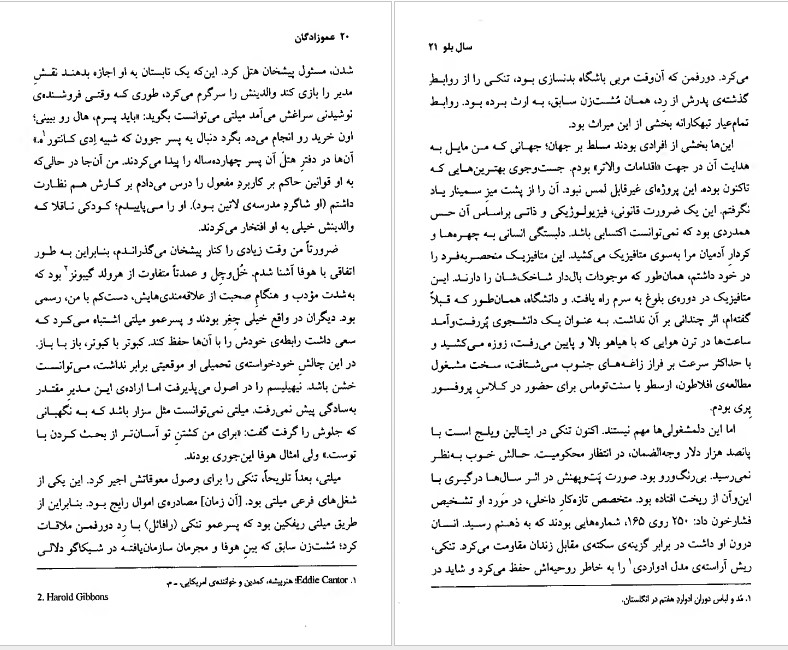 ۲۰ عموزادگان
شدن، مسئول پیشخان هتل کرد. این‌که یک تابستان به او اجازه بدهند نقشِ
مدیر را بازی کند والدینش را سرگرم می‌کرد، طوری که وقتی فروشنده‌ی
نوشیدنی سراغش می‌آمد میلتی می‌توانست بگوید: «باید پسرم، هال رو ببینی؛
اون خرید رو انجام می‌ده. بگرد دنبال یه پسر جوون که شبیه اِدی کانتور۱ه.»
آن‌ها در دفترِ هتل آن پسر چهارده‌ساله را پیدا می‌کردند. من آن‌جا در حالی‌که
به او قوانین حاکم بر کاربردِ مفعول را درس می‌دادم بر کارش هم نظارت
داشتم (او شاگردِ مدرسه‌ی لاتین بود). او را می‌پاییدم؛ کودکی ناقلا که
والدینش خیلی به او افتخار می‌کردند.
ضرورتاً من وقت زیادی را کنار پیشخان می‌گذراندم، بنابراین به طور
اتفاقی با هوفا آشنا شدم. خُل‌وچِل و عمدتاً متفاوت از هرولد گیبونز۲ بود که
به‌شدت مؤدب و هنگامِ صحبت از علاقه‌مندی‌هایش، دست‌کم با من، رسمی
بود. دیگران در واقع خیلی چغِر بودند و پسرعمو میلتی اشتباه می‌کرد که
سعی داشت رابطه‌ی خودش را با آن‌ها حفظ کند. کبوتر با کبوتر، باز با باز.
در این چالشِ خودخواسته‌ی تحمیلی او موقعیتی برابر نداشت، می‌توانست
خشن باشد. نیهیلیسم را در اصول می‌پذیرفت اما اراده‌ی این مدیرِ مقتدر
به‌سادگی پیش نمی‌رفت. میلتی نمی‌توانست مثل سزار باشد که به نگهبانی
که جلوش را گرفت گفت: «برای من کشتنِ تو آسان‌تر از بحث کردن با
توست.» ولی امثال هوفا این‌جوری بودند.
میلتی، بعداً تلویحاً، تنکی را برای وصول معوقاتش اجیر کرد. این یکی از
شغل‌های فرعی میلتی بود. [آن زمان] مصادره‌ی اموال رایج بود. بنابراین از
طریق میلتی ریفکین بود که پسرعمو تنکی (رافائل) با رِد دورفمن ملاقات
کرد؛ مُشت‌زن سابق که بینِ هوفا و مجرمان سازمان‌یافته در شیکاگو دلالی
۱. Eddie Cantor؛ هنرپیشه، کمدین و خواننده‌ی امریکایی. ـ م.
2. Harold Gibbons
سال بلو ۲۱
می‌کرد. دورفمن که آن‌وقت مربی باشگاه بدنسازی بود، تنکی را از روابطِ
گذشته‌ی پدرش از رِد، همان مُشت‌زن سابق، به ارث برده بود. روابط
تمام‌عیار تبهکارانه بخشی از این میراث بود.
این‌ها بخشی از افرادی بودند مسلط بر جهان؛ جهانی که من مایل به
هدایت آن در جهت «اقدامات والاتر» بودم. جست‌وجوی بهترین‌هایی که
تاکنون بوده. این پروژه‌ای غیرقابل لمس نبود. آن را از پشت میز سمینار یاد
نگرفتم. این یک ضرورت قانونی، فیزیولوژیکی و ذاتی براساس آن حس
همدردی بود که نمی‌توانست اکتسابی باشد. دلبستگی انسانی به چهره‌ها و
کردارِ آدمیان مرا به‌سوی متافیزیک می‌کشید. این متافیزیک منحصربه‌فرد را
در خود داشتم، همان‌طور که موجودات بال‌دار شاخک‌شان را دارند. این
متافیزیک در دوره‌ی بلوغ به سرم راه یافت. و دانشگاه، همان‌طور که قبلاً
گفته‌ام، اثر چندانی بر آن نداشت. به عنوان یک دانشجوی پُررفت‌وآمد
ساعت‌ها در ترن هوایی که با هیاهو بالا و پایین می‌رفت، زوزه می‌کشید و
با حداکثر سرعت بر فراز زاغه‌های جنوب می‌شتافت، سخت مشغول
مطالعه‌ی افلاطون، ارسطو یا سنت‌توماس برای حضور در کلاسِ پروفسور
پِری بودم.
اما این دلمشغولی‌ها مهم نیستند. اکنون تنکی در ایتالین ویلج است با
پانصد هزار دلار وجه‌الضمان، در انتظار محکومیت. حالش خوب به‌نظر
نمی‌رسید. بی‌رنگ‌ورو بود. صورت پَت‌وپهنش در اثر سال‌ها درگیری با
این‌وآن از ریخت افتاده بود. متخصص تازه‌کارِ داخلی، در مورد او تشخیص
فشارخون داد: ۲۵۰ روی ۱۶۵، شماره‌هایی بودند که به ذهنم رسید. انسان
درون او داشت در برابر گزینه‌ی سکته‌ی مقابل زندان مقاومت می‌کرد. تنکی،
ریش آراسته‌ی مدل ادواردی۱ را به خاطر روحیه‌اش حفظ می‌کرد و شاید در
۱. مُد و لباس دوران ادواردِ هفتم در انگلستان.